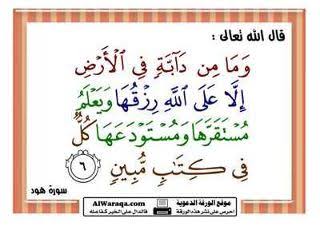 قال الله تعالى :
وَمَا مِن دَآبَّةٍ فِي ٱلْأَرْضِ
إِلَّا عَلَى ٱللَّهِ رِزْقُهَا وَيَعْلَمُ
مُسْتَقَرَّهَا وَمُسْتَوْدَعَهَا كُلٌّ
فِي كِتَٰبٍ مُّبِينٍ ٦
سورة هود
موقع الورقة الدعوية
AlWaraqa.com
احرص على نشر هذه الورقة
فالدال على الخير كفاعله